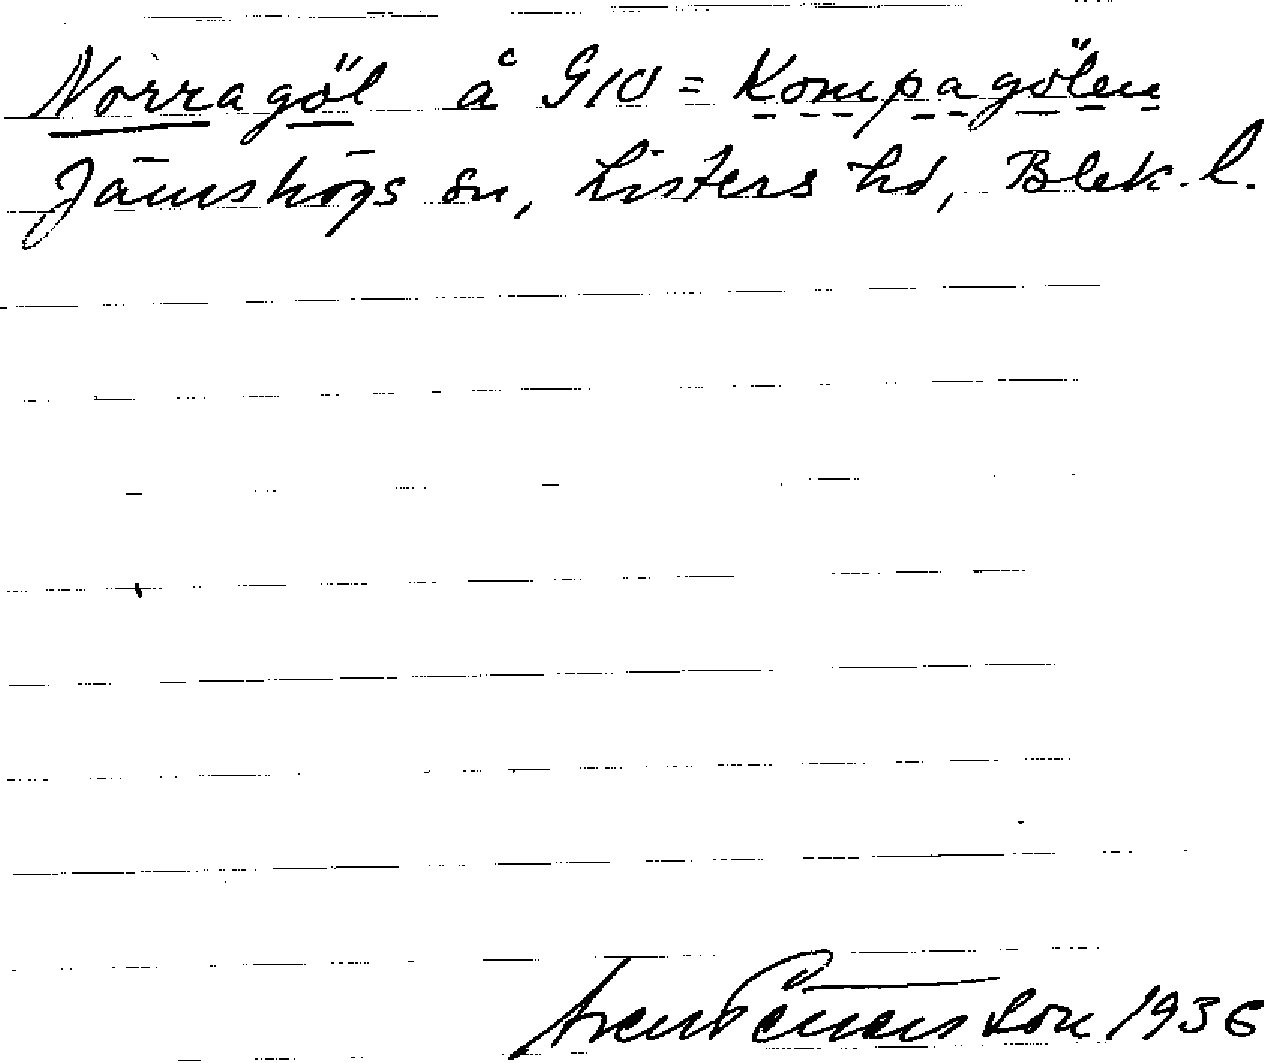 Norragöl å G10 = Kompagölen
Jämshögs sn, Listers hd, Blek. l.
Sven Benson 1936